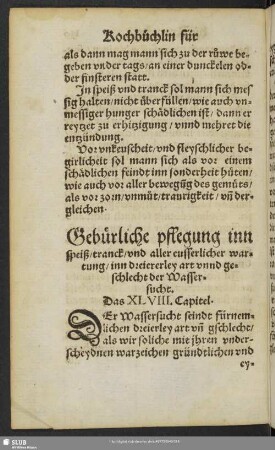 Kochbüchlin für
als dann mag mann sich zu der růwe be-
geben vnder tags/ an einer dunckelen od-
der finsteren statt.
In speiß vnd tranck sol mann sich mes
sig halten/ nicht überfüllen/ wie auch vn-
messiger hunger schädlichen ist/ dann er
reytzet zu erhitzigung/ vnnd mehret die
entzündung.
Vor vnkeuscheit/ vnd fleyschlicher be-
girlicheit sol mann sich als vor einem
schädlichen feindt inn sonderheit hüten/
wie auch vor aller bewegũg des gemüts/
als vor zorn/ vnmůt/ traurigkeit/ vñ der-
gleichen.
Gebürliche pflegung inn
speiß/ tranck/ vnd aller eusserlicher war-
tung/ inn dreierley art vnnd ge-
schlecht der Wasser-
sucht.
Das XLVIII. Capitel.
DEr Wassersucht seindt fürnem-
lichen dreierley art vñ gschlecht/
als wir soliche mit jhren vnder-
scheydnen warzeichen gründtlichen vnd
ey-
SLUB